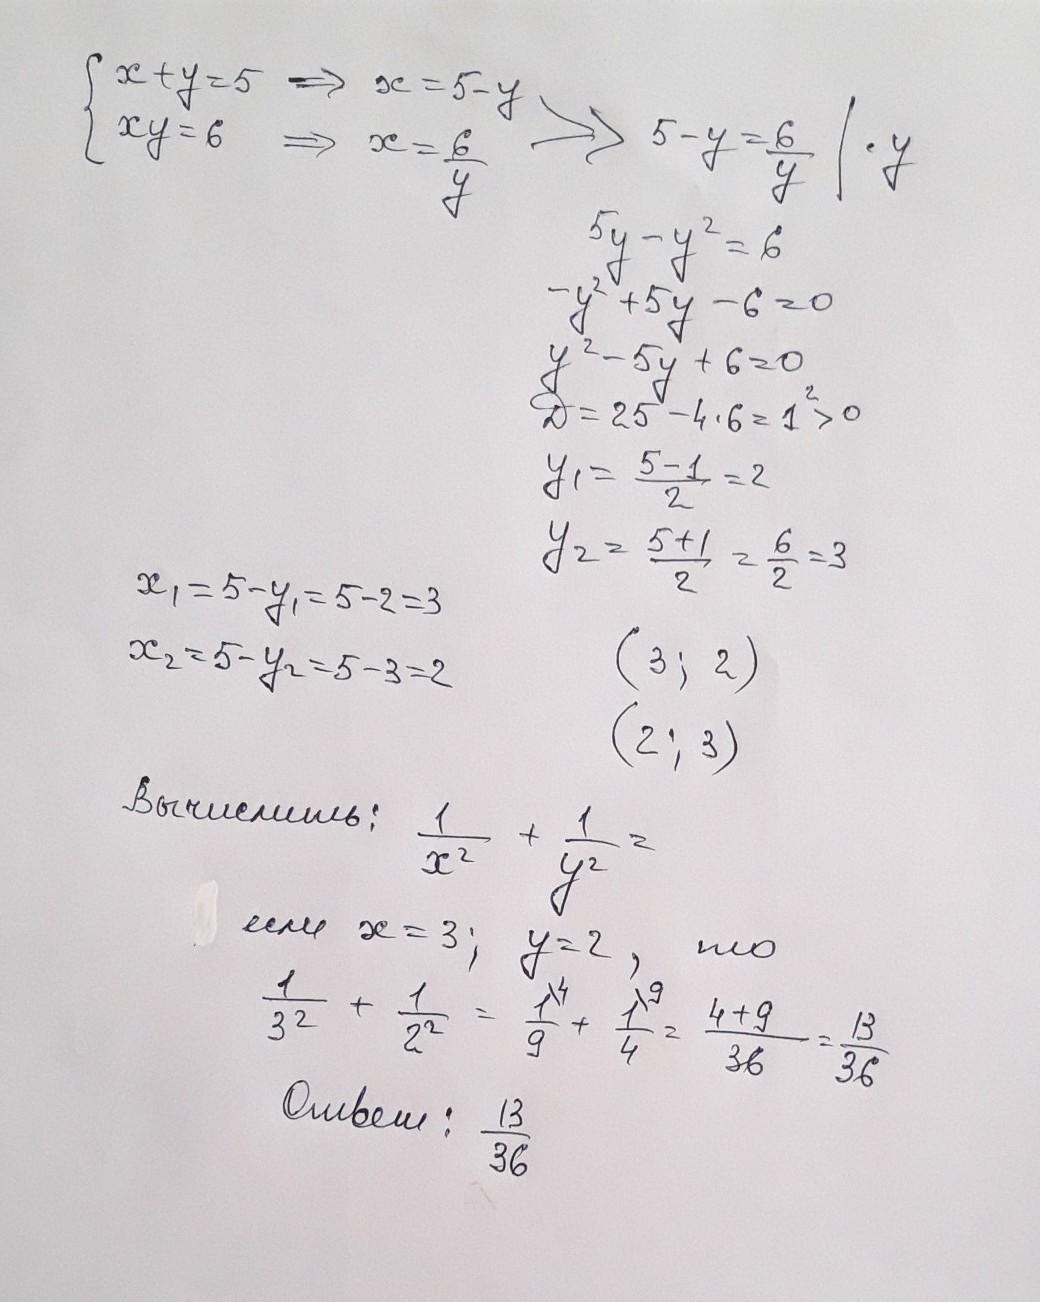 { x+y=5 ⇒ x=5-y
xy=6 ⇒ x=6/y ⇒ 5-y=6/y | ·y
5y-y²=6
-y²+5y-6=0
y²-5y+6=0
D=25-4·6=1²>0
y₁=(5-1)/2=2
y₂=(5+1)/2=6/2=3
x₁=5-y₁=5-2=3
x₂=5-y₂=5-3=2
(3; 2)
(2; 3)
Вычислить: 1/x² + 1/y² =
если x=3; y=2, то
1/3² + 1/2² = 1\4/9 + 1\9/4 = (4+9)/36 = 13/36
Ответ: 13/36